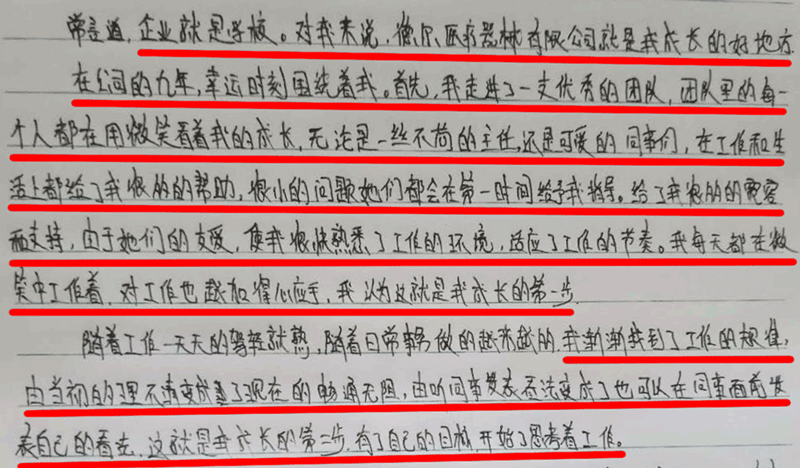 常言道,企业就是学校。对我来说,倦尔医疗器械有限公司就是我成长的好地方.
在公司的九年,幸运时刻围绕着我。首先,我走进了一支优秀的团队,团队里的每一
个人都在用微笑看着我的成长,无论是一丝不苟的主任,还是可爱的同事们,在工作和生
活上都给了我很多的帮助,很小的问题她们都会在第一时间给予我指导。给了我很多的宽容
和支持,由于她们的支爱,使我很快熟悉了工作的环境,适应了工作的节奏。我每天都在微
笑中工作着,对工作也越加得心应手,我认为这就是我成长的第一步.
随着工作一天天的驾轻就熟,随着日常事务做的越来越的,我渐渐找到了工作的规律,
由当初的理不清变成了现在的畅通无阻,由听同事发表看法变成了也可以在同事面前发
表自己的看法,这就是我成长的第二步,有了自己的目标,开始了思考着工作。